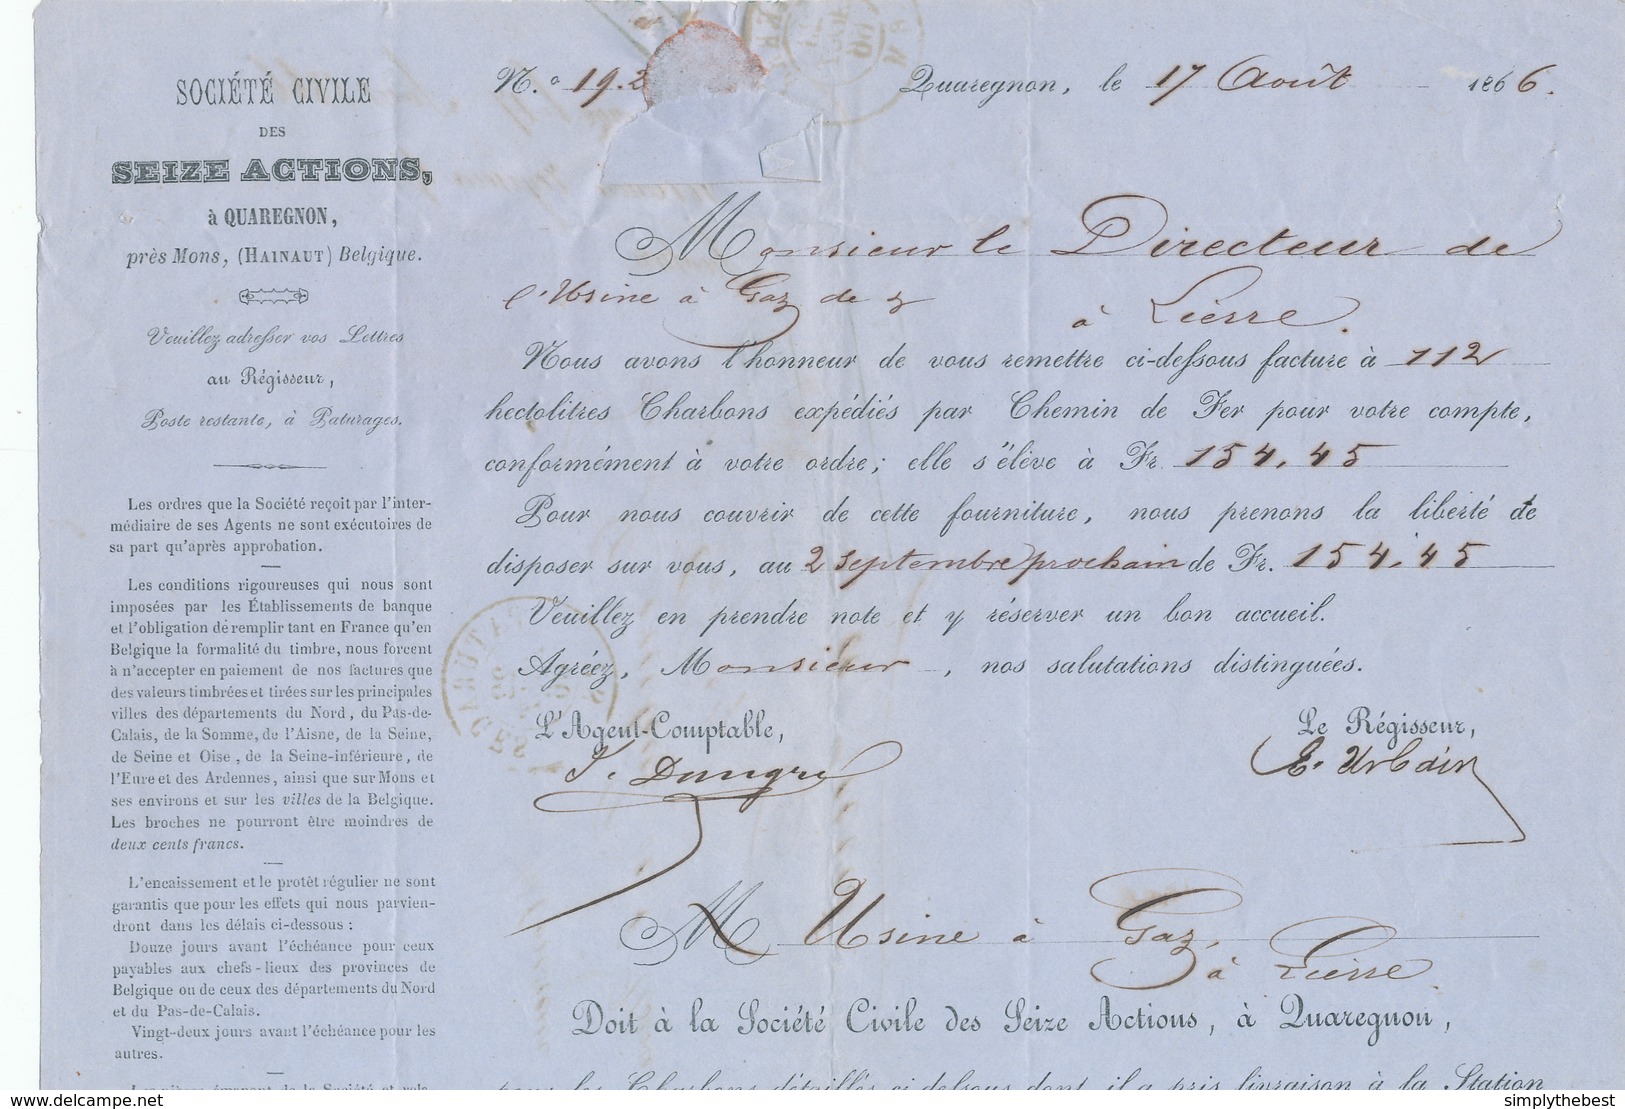 SOCIÉTÉ CIVILE
DES
SEIZE ACTIONS,
à QUAREGNON,
près Mons, (HAINAUT) Belgique.
Veuillez adresser vos Lettres
au Régisseur,
Poste restante, à Paturages.
Les ordres que la Société reçoit par l'inter-
médiaire de ses Agents ne sont exécutoires de
sa part qu'après approbation.
Les conditions rigoureuses qui nous sont
imposées par les Établissements de banque
et l'obligation de remplir tant en France qu'en
Belgique la formalité du timbre, nous forcent
à n'accepter en paiement de nos factures que
des valeurs timbrées et tirées sur les principales
villes des départements du Nord, du Pas-de-
Calais, de la Somme, de l'Aisne, de la Seine,
de Seine et Oise, de la Seine-inférieure, de
l'Eure et des Ardennes, ainsi que sur Mons et
ses environs et sur les villes de la Belgique.
Les broches ne pourront être moindres de
deux cents francs.
L'encaissement et le protêt régulier ne sont
garantis que pour les effets qui nous parvien-
dront dans les délais ci-dessous :
Douze jours avant l'échéance pour ceux
payables aux chefs-lieux des provinces de
Belgique ou de ceux des départements du Nord
et du Pas-de-Calais.
Vingt-deux jours avant l'échéance pour les
autres.
N.o 19.2
Quaregnon, le 17 Août 1866.
Monsieur le Directeur de
l'Usine à Gaz de
à Lierre.
Nous avons l'honneur de vous remettre ci-dessous facture à 112
hectolitres Charbons expédiés par Chemin de Fer pour votre compte,
conformément à votre ordre; elle s'élève à Fr 154.45
Pour nous couvrir de cette fourniture, nous prenons la liberté de
disposer sur vous, au 2 Septembre prochain de Fr. 154.45
Veuillez en prendre note et y réserver un bon accueil.
Agréez, Monsieur, nos salutations distinguées.
L'Agent-Comptable,
Le Régisseur,
E. Urbain
M Usine à Gaz,
à Lierre
Doit à la Société Civile des Seize Actions, à Quaregnon,
pour les Charbons détaillés ci-dessous dont il a pris livraison à la Station
delcampe.net
simplythebest